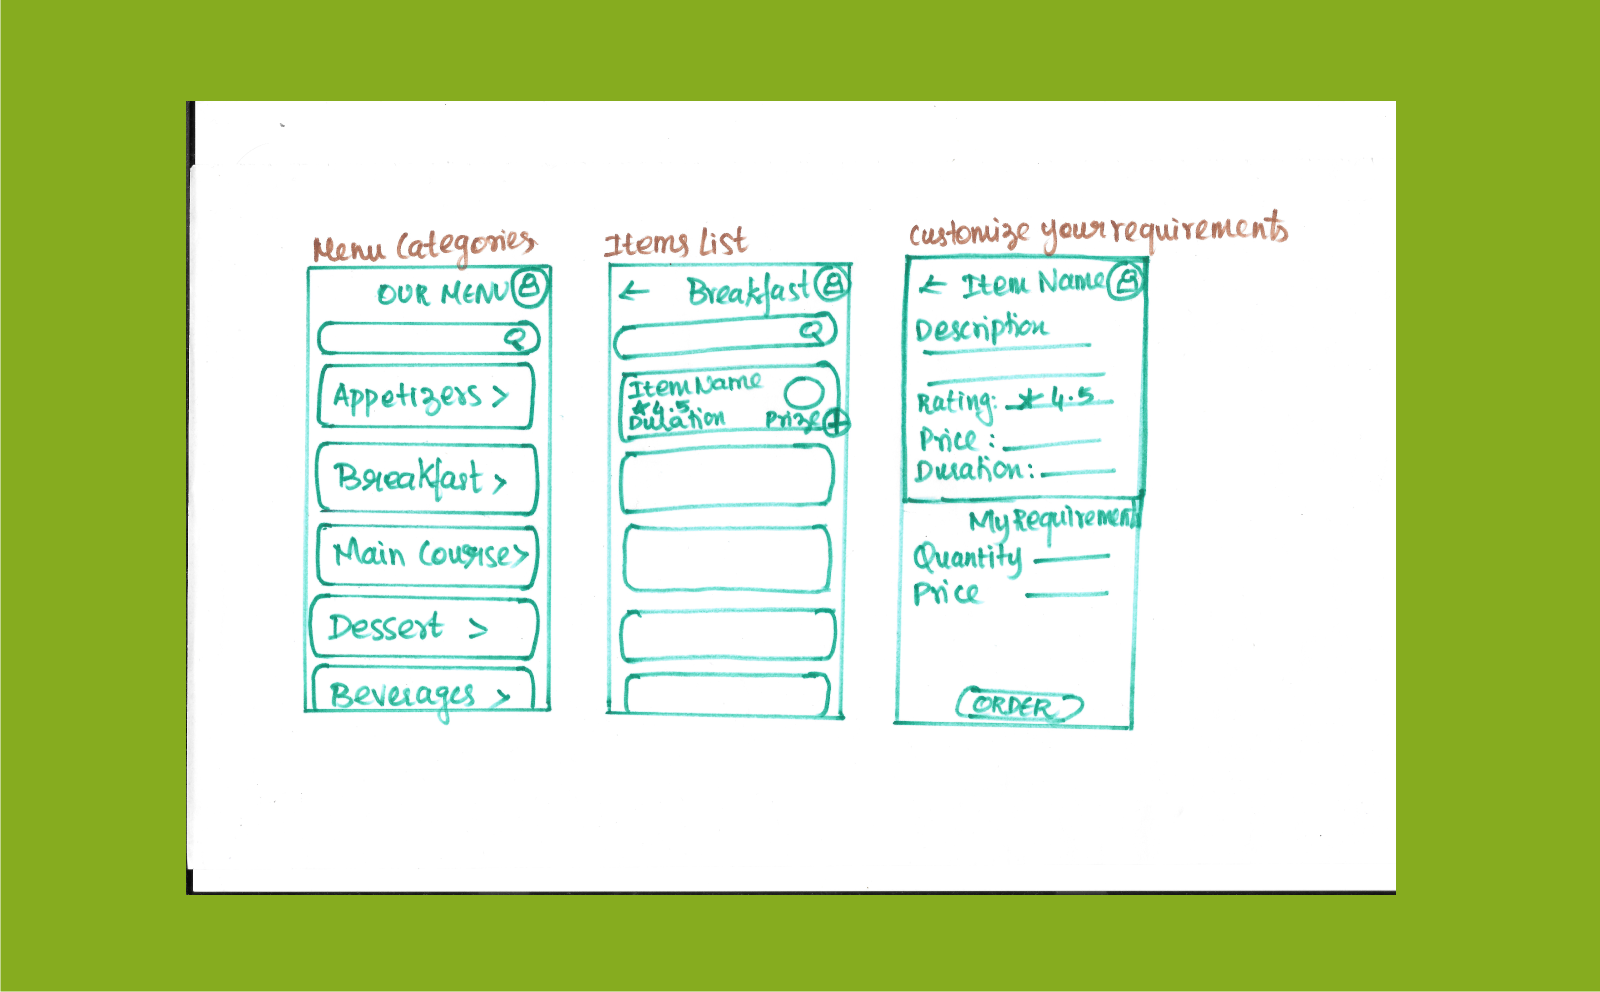 Menu Categories
OUR MENU
Appetizers >
Breakfast >
Main Course >
Dessert >
Beverages >
Items List
← Breakfast
Item Name
★ 4.5
Duration
Prize +
Customize your requirements
← Item Name
Description
Rating: ★ 4.5
Price :
Duration:
My Requirement
Quantity
Price
ORDER